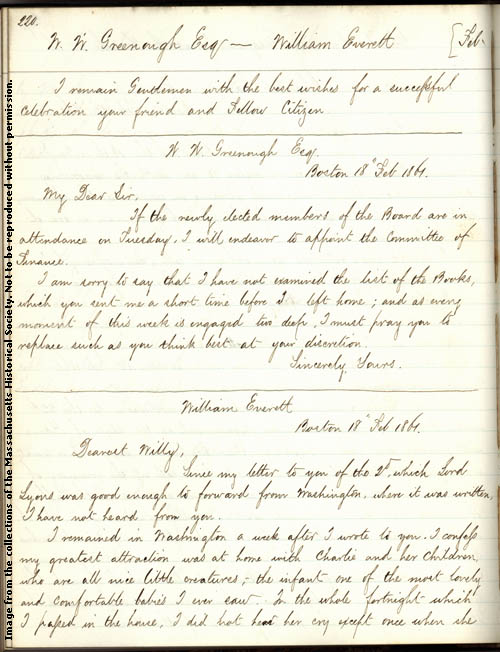 220.
W. W. Greenough Esq — William Everett [Feb.
I remain Gentlemen with the best wishes for a successful
celebration your friend and Fellow Citizen
W. W. Greenough Esq.
Boston 18th Feb 1861.
My Dear Sir,
If the newly elected members of the Board are in
attendance on Tuesday, I will endeavor to appoint the Committee of
Finance.
I am sorry to say that I have not examined the list of the Books,
which you sent me a short time before I left home; and as every
moment of this week is engaged two deep, I must pray you to
replace such as you think best at your discretion.
Sincerely Yours.
William Everett
Boston 18th Feb 1861.
Dearest Willy,
Since my letter to you of the 2d, which Lord
Lyons was good enough to forward from Washington, where it was written,
I have not heard from you.
I remained in Washington a week after I wrote to you. I confess
my greatest attraction was at home with Charlie and her Children,
who are all nice little creatures; the infant one of the most lovely
and comfortable babies I ever saw. In the whole fortnight which
I passed in the house, I did not hear her cry except once when she
Image from the collections of the Massachusetts Historical Society. Not to be reproduced without permission.